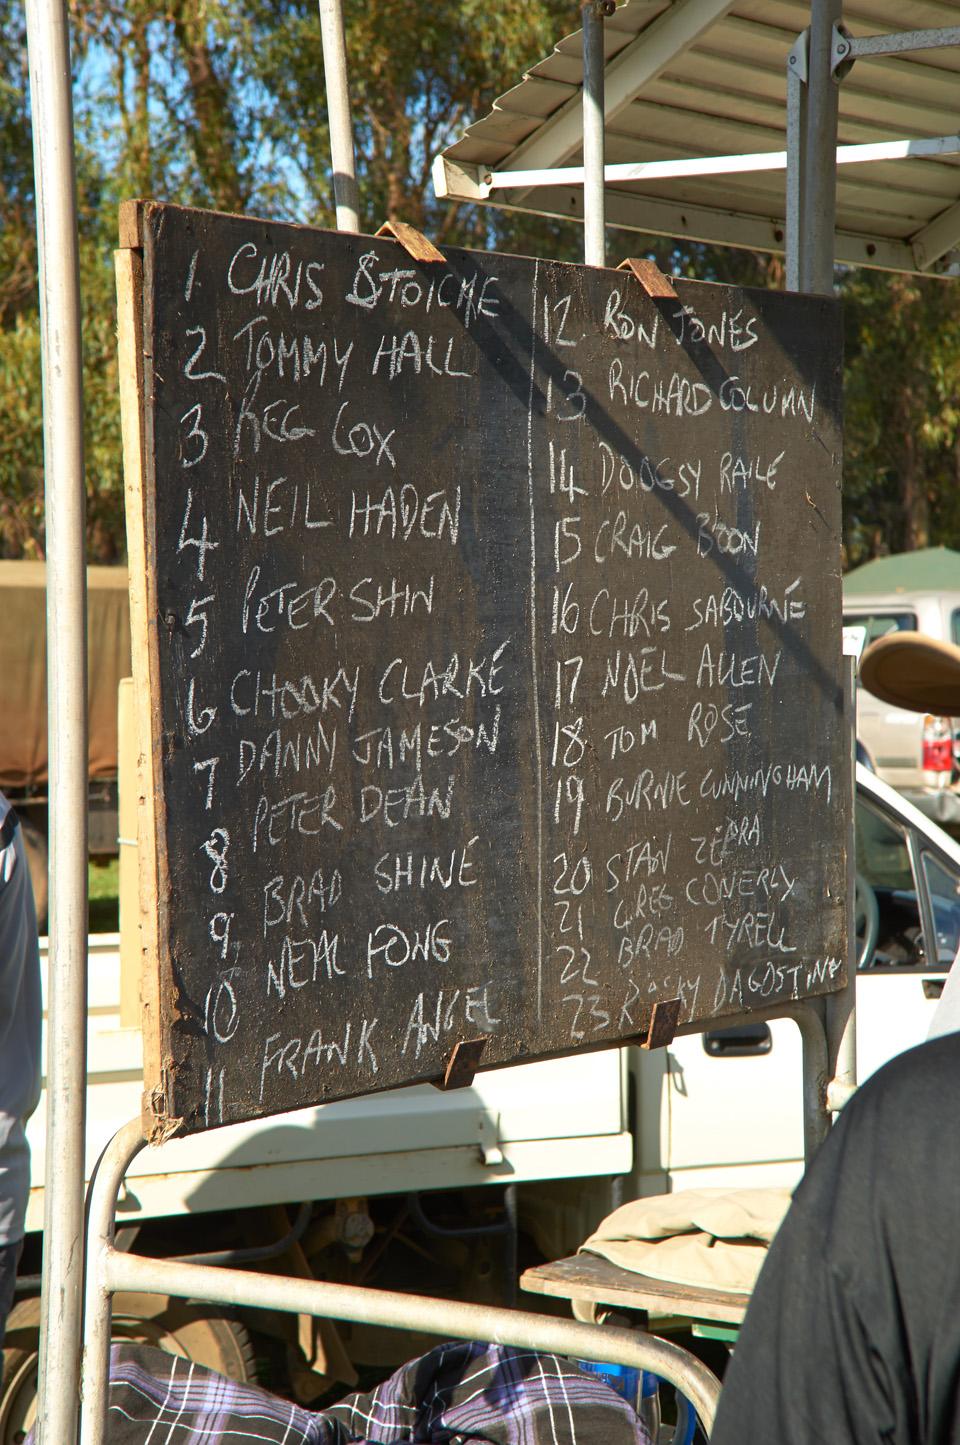 1 CHRIS STOICHE
2 TOMMY HALL
3 REG COX
4 NEIL HADEN
5 PETER SHIN
6 CHOOKY CLARKE
7 DANNY JAMESON
8 PETER DEAN
9 BRAD SHINE
10 NEAL FONG
11 FRANK ANGEL
12 RON JONES
13 RICHARD COLUMN
14 DOOGSY RAILE
15 CRAIG BOON
16 CHRIS SABOURNE
17 NOEL ALLEN
18 TOM ROSE
19 BURNIE CUNNINGHAM
20 STAN ZEBRA
21 GREG CONERLY
22 BRAD TYRELL
23 ROCKY DAGOSTINE